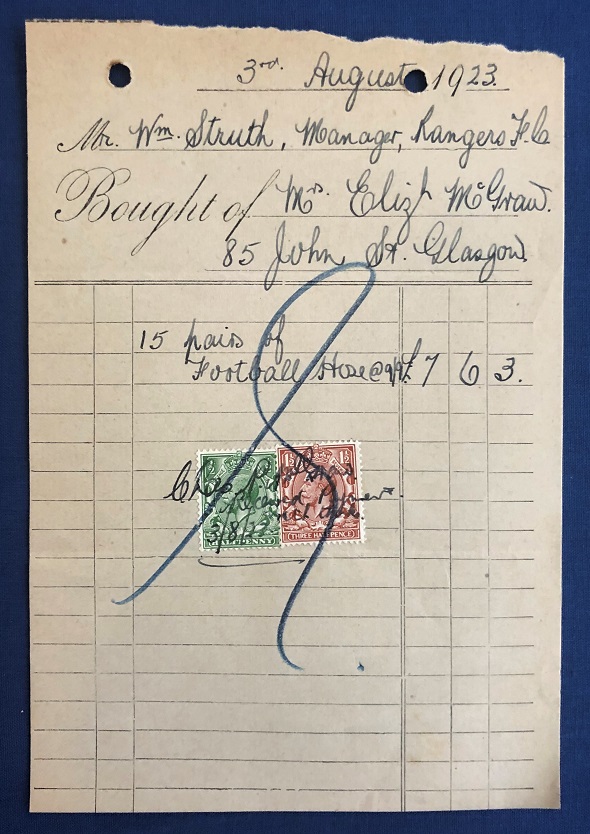 3rd. August 1923.
Mr. Wm. Struth, Manager, Rangers F.C.
Bought of Mrs. Elizh McGraw.
85 John St. Glasgow.
15 pairs of
Football Hose @ 9/9 £ 7 6 3.
1½ 1½
3/8/23
HALFPENNY THREE HALFPENCE